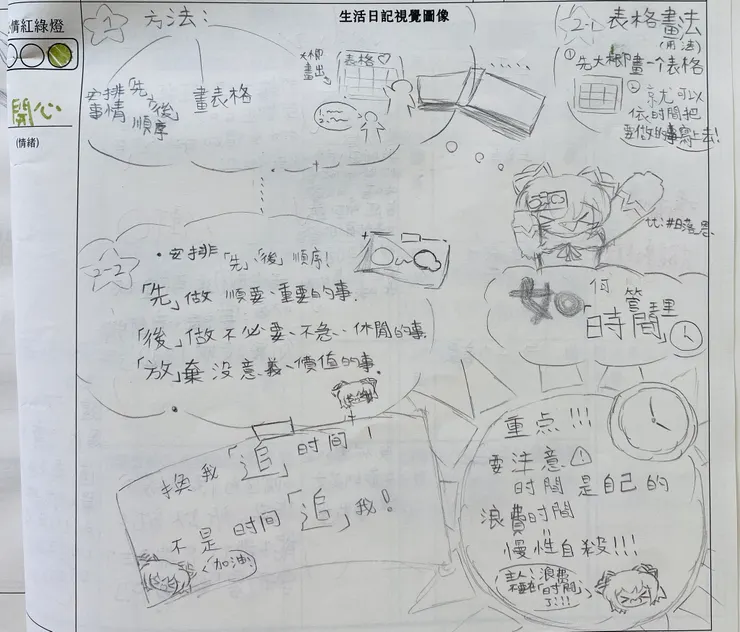 情紅綠燈
開心
(情緒)
生活日記視覺圖像
1
方法:
安排「先、後」
事情 順序
畫表格
大概
畫出
表格♡
2-1 表格畫法
(用法)
① 先大概畫一個表格
② 就可以
依時間把
要做的事寫上去!
2-2
·安排「先」「後」順序!
「先」做 順要、重要的事.
「後」做不必要、不急、休閒的事.
「放」棄沒意義、價值的事.
如何
管理
「時間」
換我「追」時間!
不是時間「追」我!
加油!
重点!!!
要注意⚠
時間是自己的
浪費時間
=
慢性自殺!!!
主人:浪費
時間
了!!!